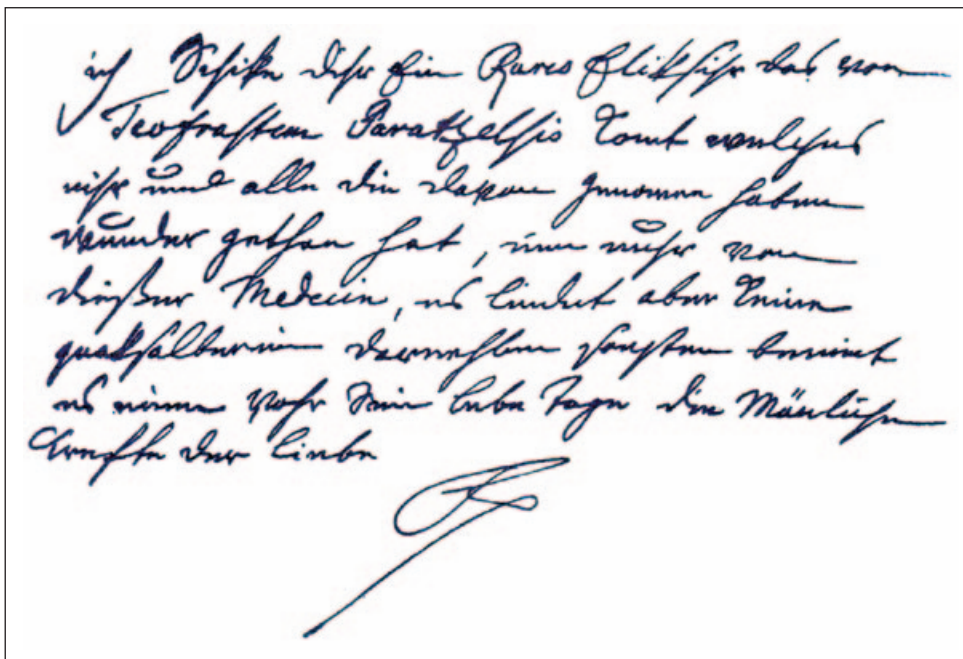 ich Schike dihr Ein Rares Eliksihr das von
Teofrastem Paratzelsio Komt welches
mihr und alle die davon genomen haben
wunder gethan hat, nim nuhr von
dießer Medecin, es leidet aber Keine
quaksalbereien darnehben sonsten benimt
es einen vohr sein lebe Tage die Mänliche
Krefte der liebe